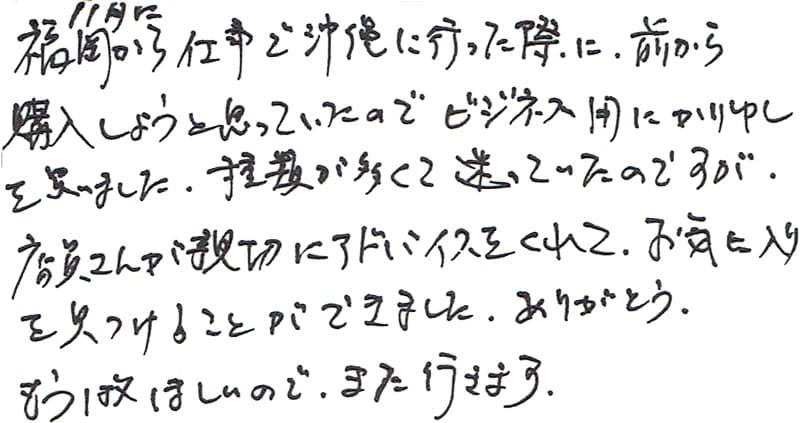 11月に
福岡から仕事で沖縄に行った際に、前から
購入しようと思っていたのでビジネス用にかりゆし
を買いました。種類が多くて迷っていたのですが、
店員さんが親切にアドバイスをくれて、お気に入り
を見つけることができました。ありがとう。
もう1枚ほしいので、また行きます。